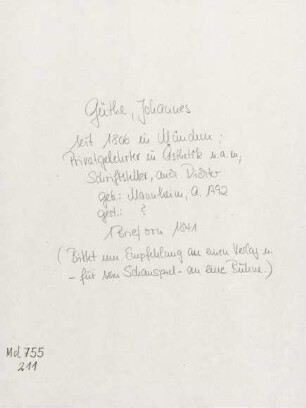 Güthe, Johannes
seit 1806 in München;
Privatgelehrter in Ästhetik u.a.m,
Schriftsteller, auch Dichter
geb.: Mannheim, a. 1792
gest.: ?
1 Brief von 1841
(Bittet um Empfehlung an einen Verlag u.
- für sein Schauspiel - an eine Bühne.)
Md 755
211